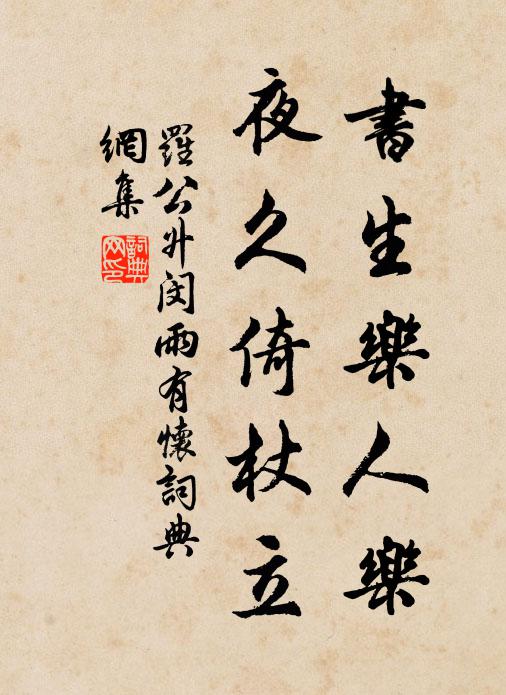 書生樂人樂
夜久倚杖立
羅公升閔雨有懷詞典
網集
詞典
网印